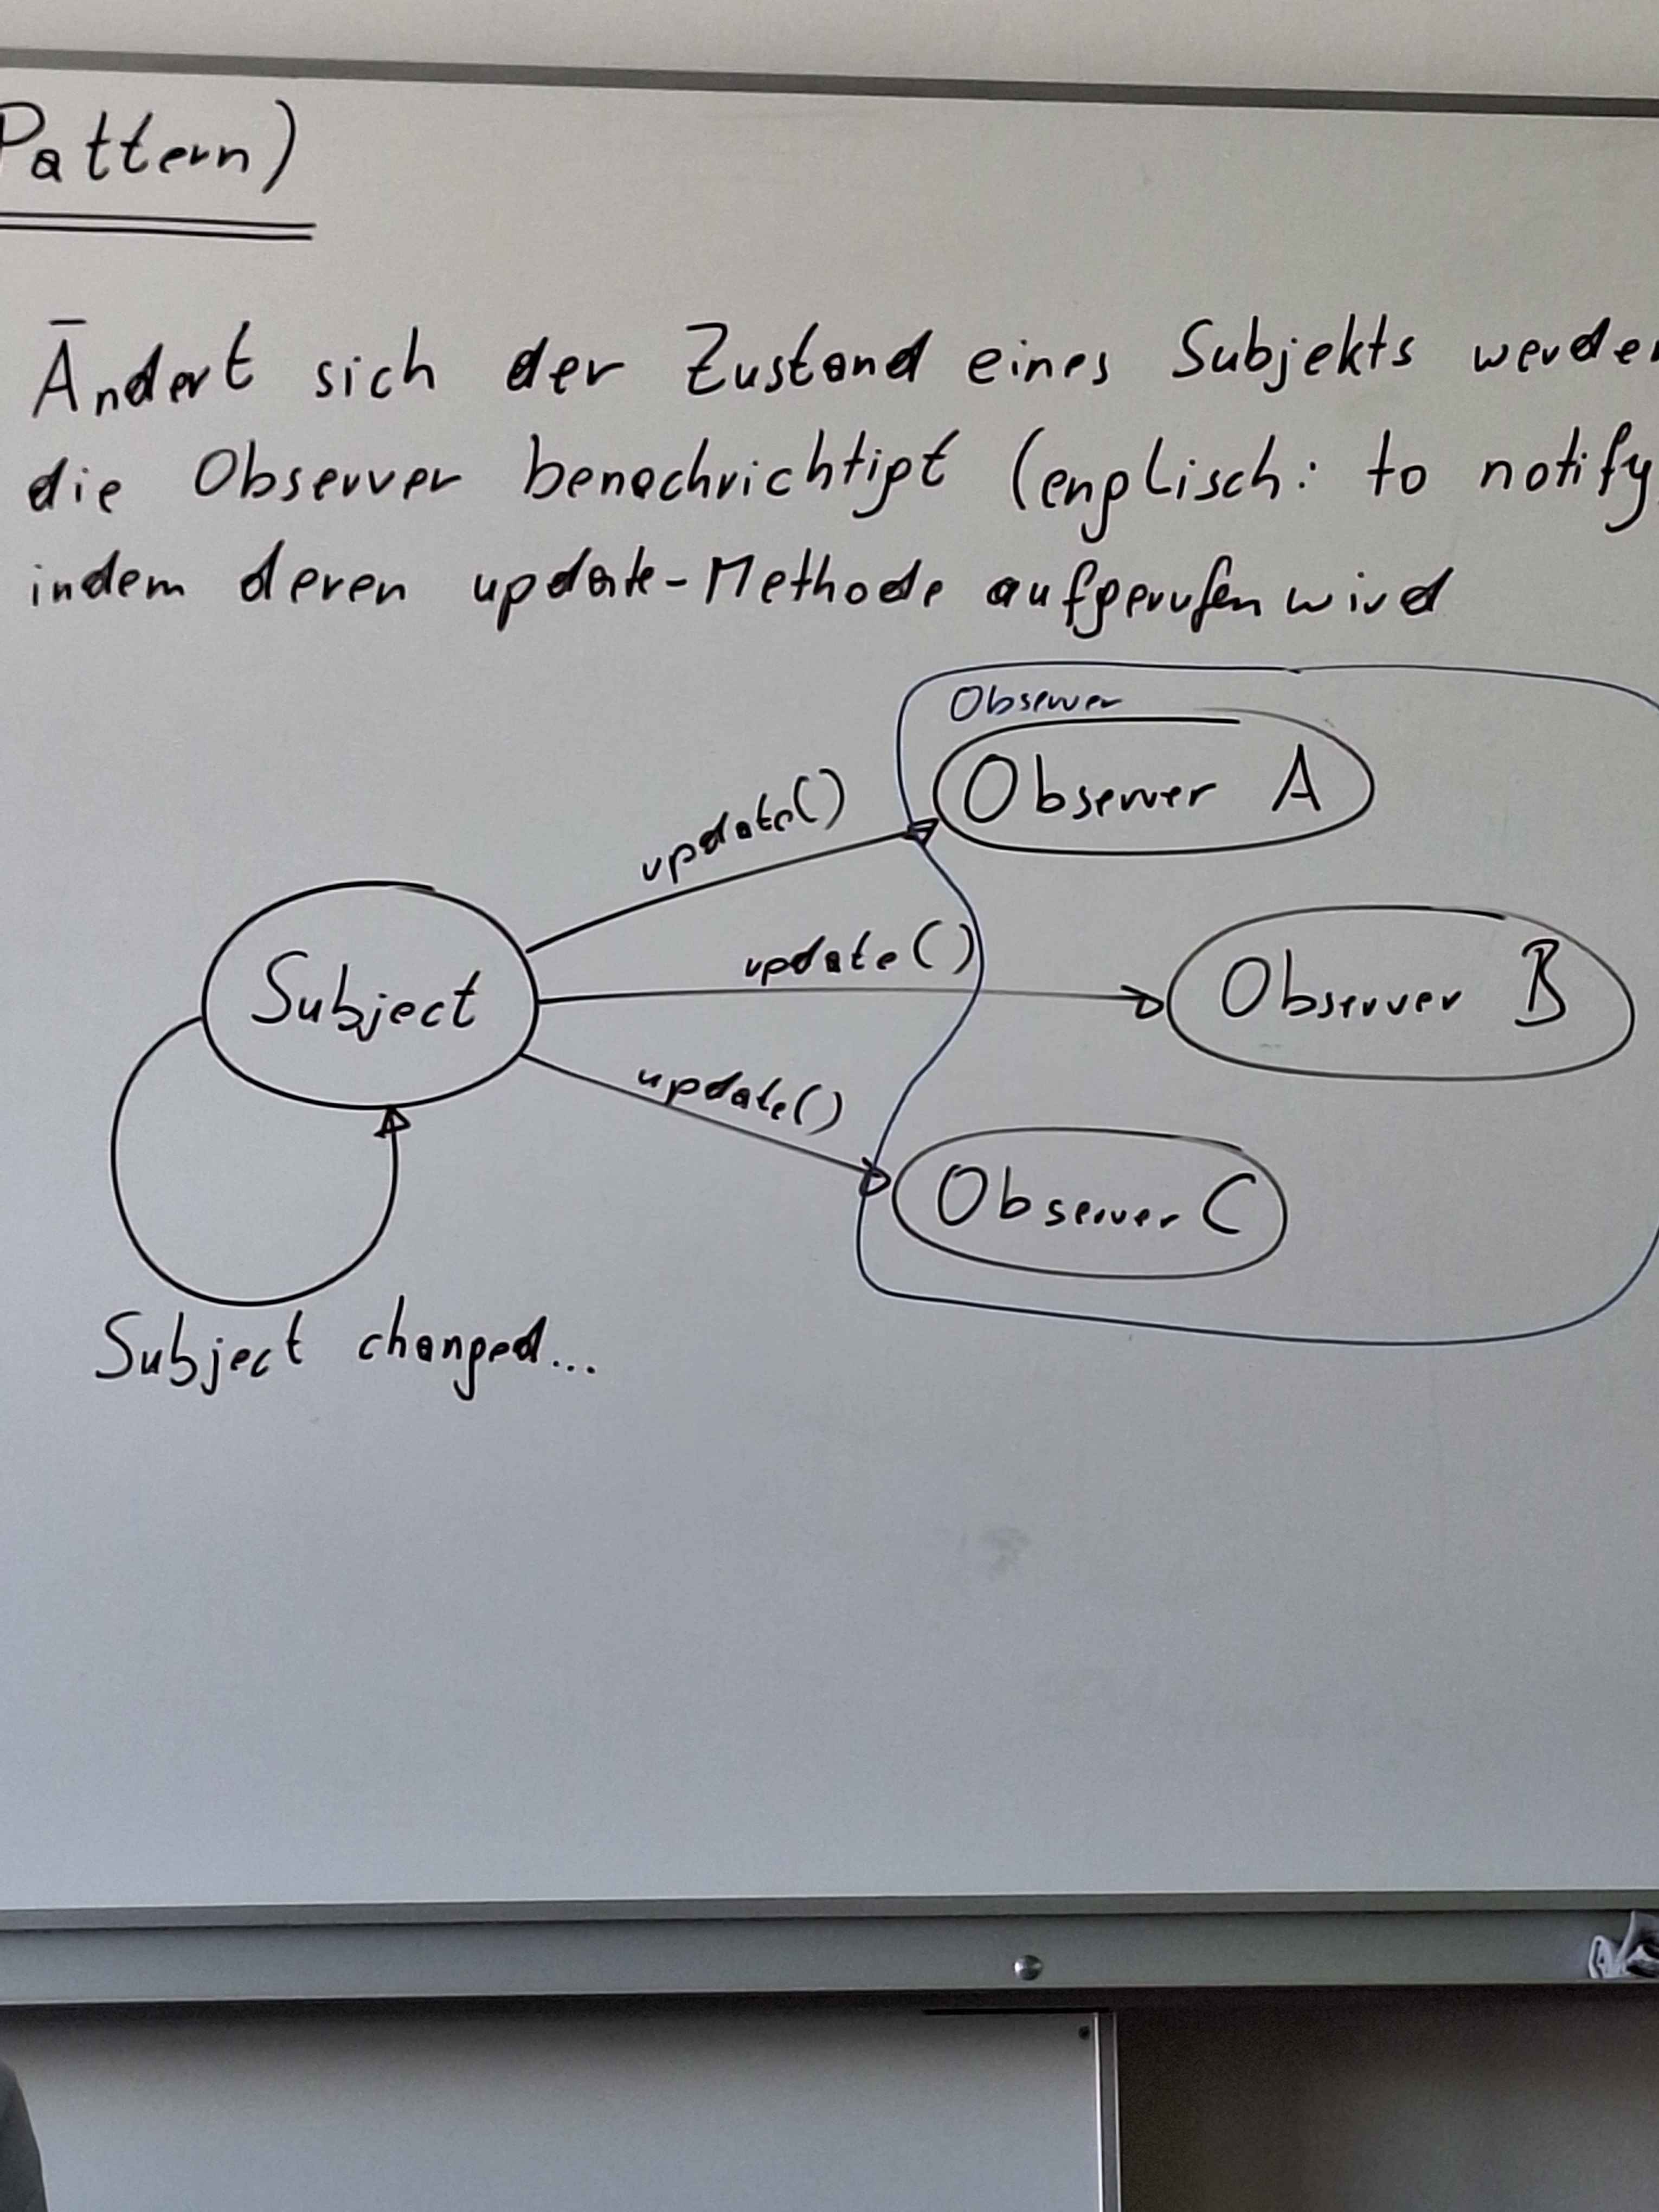 Pattern)
Ändert sich der Zustand eines Subjekts werden
die Observer benachrichtigt (englisch: to notify
indem deren update-Methode aufgerufen wird
Observer
Observer A
update()
update()
Observer B
Subject
update()
Observer C
Subject changed...